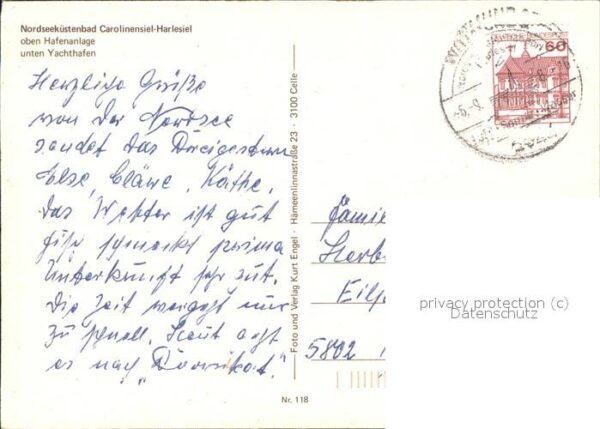 Nordseeküstenbad Carolinensiel-Harlesiel
oben Hafenanlage
unten Yachthafen
Herzliche Grüße
von der Nordsee
sendet das Dreigestirn
Else, Kläre, Käthe.
Das Wetter ist gut
schmeckt prima
Unterkunft sehr gut.
Die Zeit vergeht nur
zu schnell. Heut geht
es nach
Foto und Verlag Kurt Engel · Hämeenlinnastraße 23 · 3100 Celle
Nr. 118
60
Familie
Herb
Eilp
5802
privacy protection (c)
Datenschutz